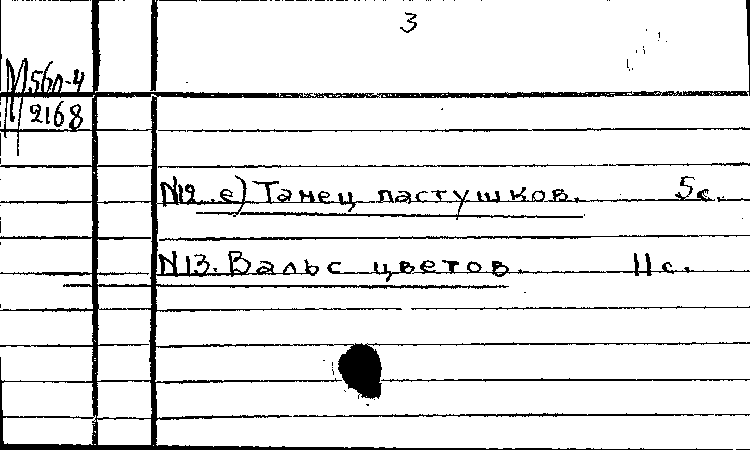 3
М 560-4
2168
N12 е) Танец пастушков. 5 с.
N13. Вальс цветов. 11 с.